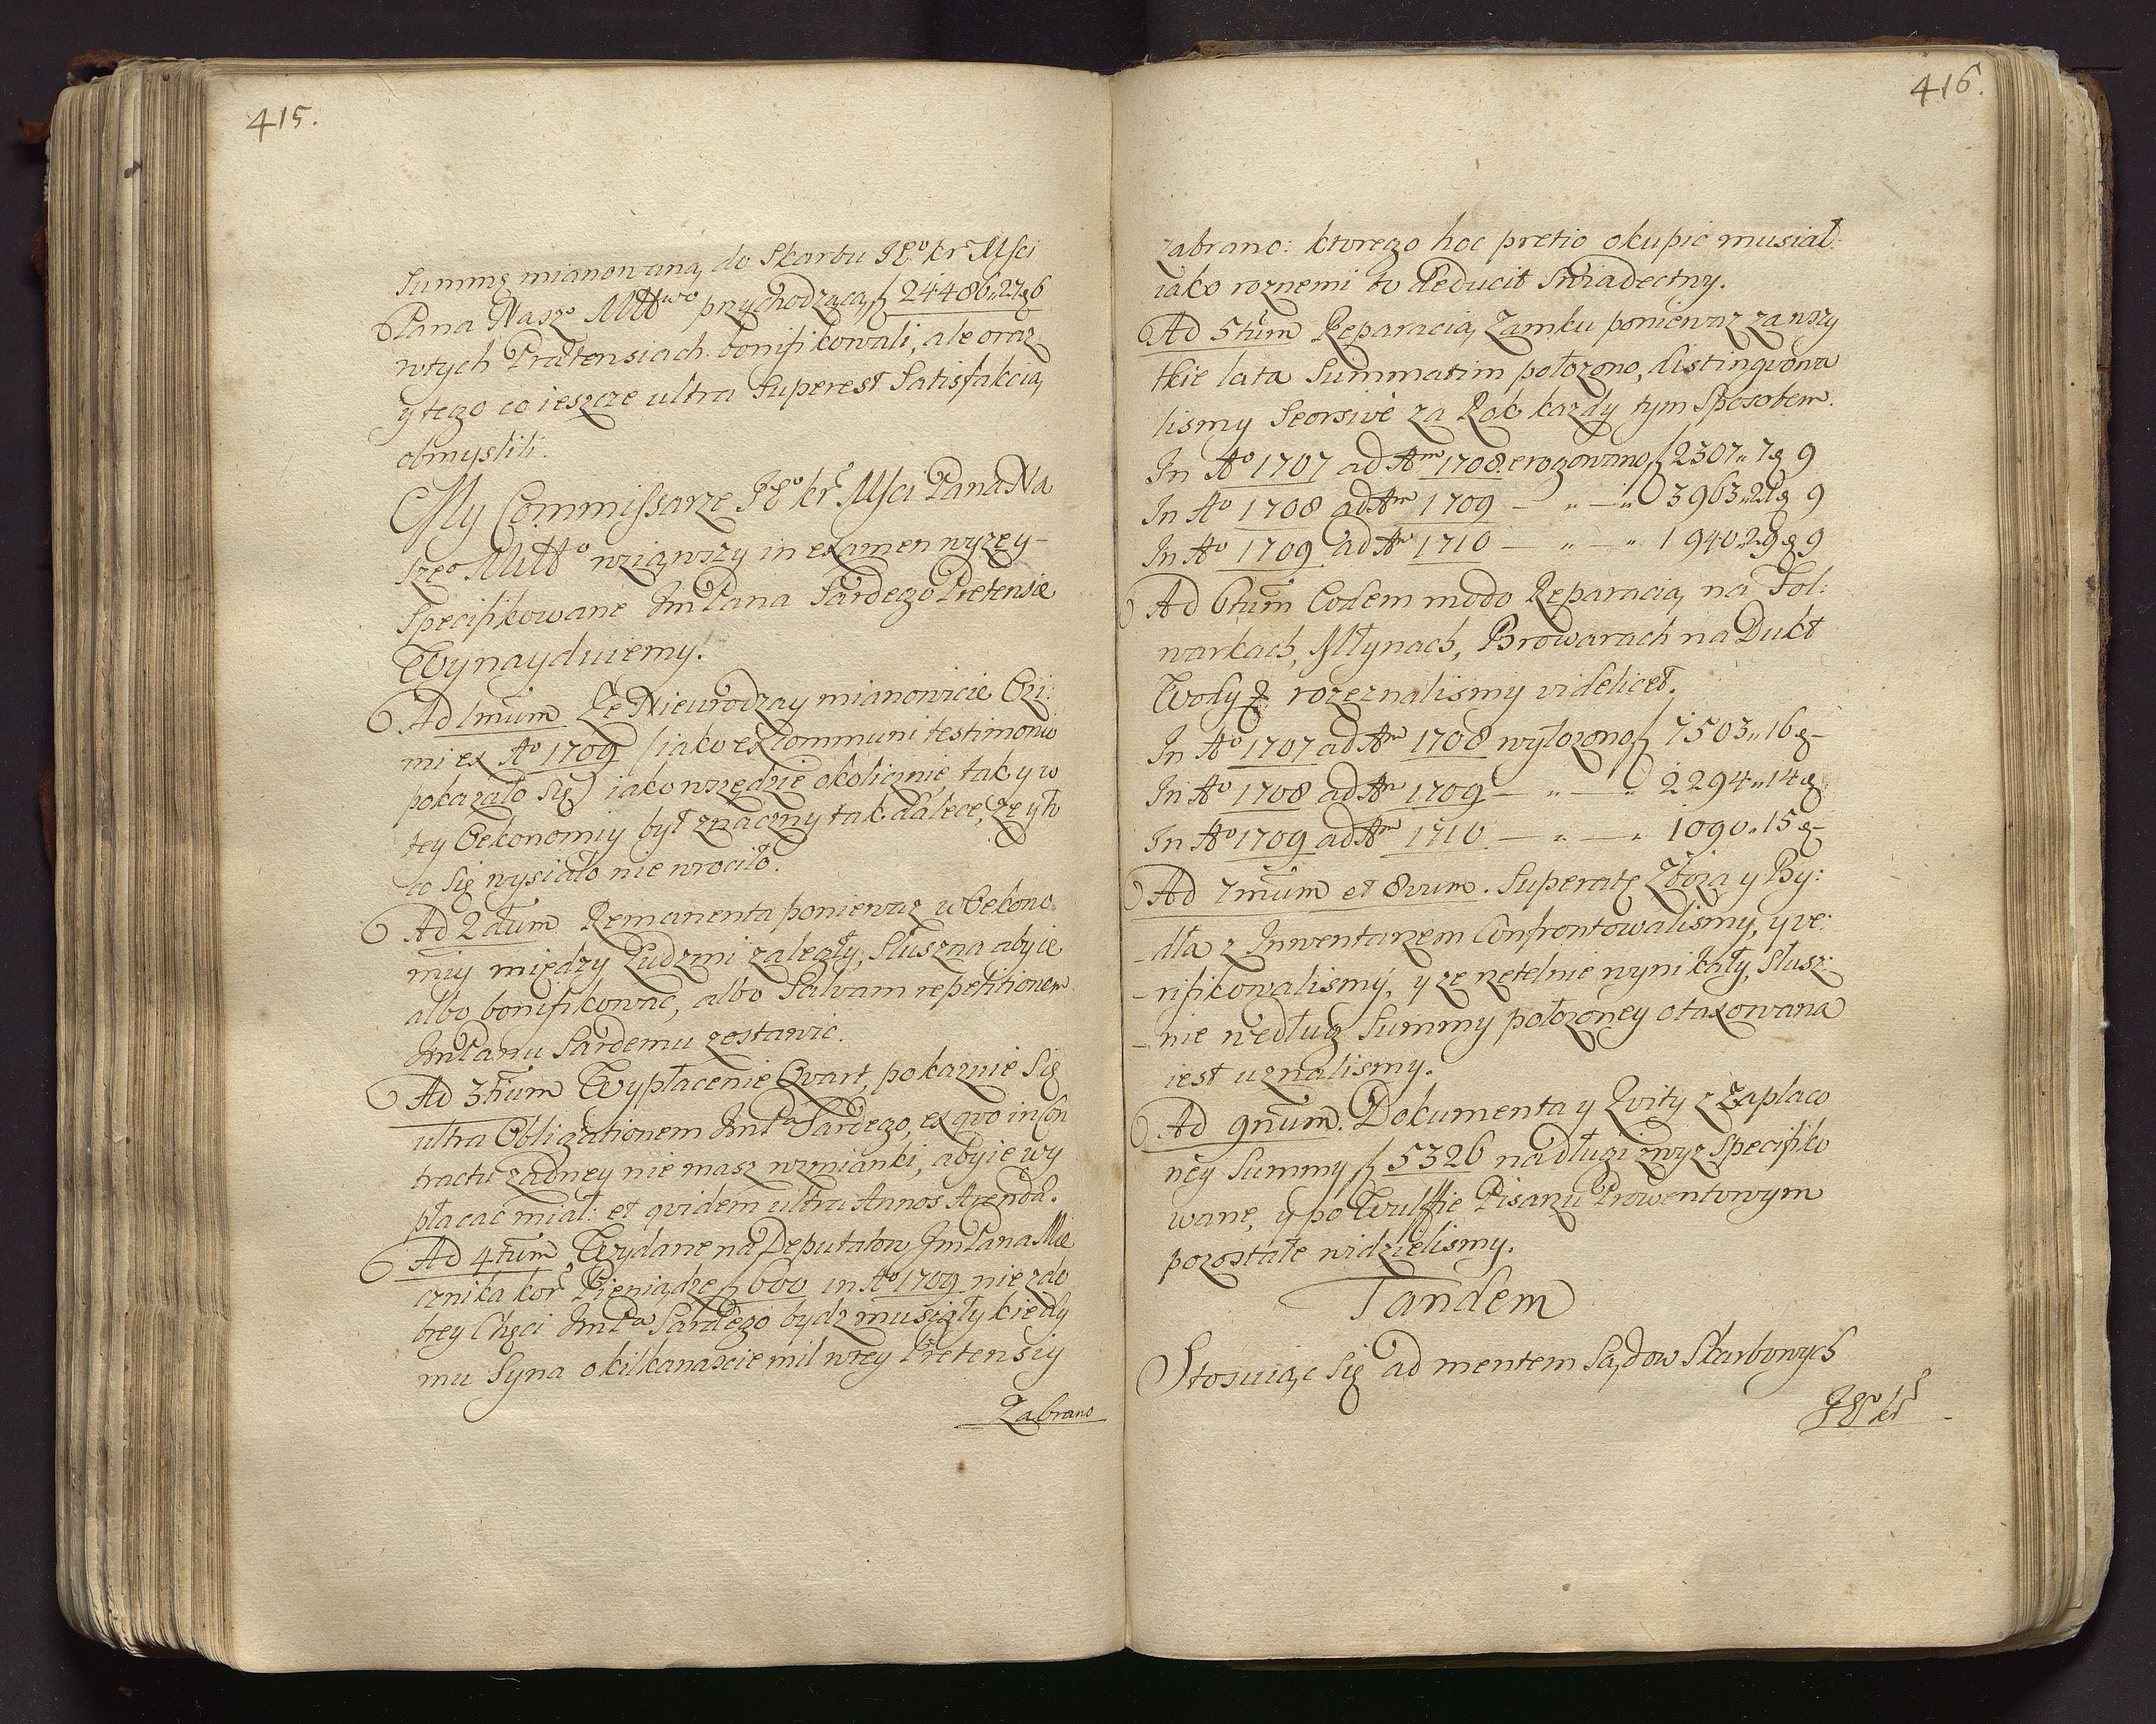 415.
Summę mianowaną do Skarbu JKo kr Msci
Pana Naszo Mttwo przychodzącą f 24486 27 g 6
wtych Prætensiach bonifikowali, ale oraz
y tego co ieszcze ultra Superest Satisfakcią
obmyslili.
My Commissarze JKo kr Msci Pana Na
szeo Mttło wziąwszy in examen wyzey-
Specifikowane Jm Pana Sardego Pretensie
Wynayduiemy.
Ad 1mum Ze Nieurodzay mianowicie Ozi:
mi ex Ao 1709 (iako ex communi testimonio
pokazało się) iako wszędzie okolicznie, tak y w
tey Oekonomiy był znaczny tak dalece, ze y to
co się wysiało nie wrociło.
Ad 2dum Remanenta poniewaz w Oekono
miy między Ludzmi zaległy, Słuszna aby ie
albo bonifikować, albo Salvam repetitionem
Jm Panu Sardemu zostawic.
Ad 3tium Wypłacenie Qvart, pokazuie się
ultra Obligationem Jm Pa Sardego, ex qvo in Con
tractu zadney nie masz wzmianki, aby ie wy
płacać miał: et qvidem ultra Annos Arendæ.
Ad 4tum Wydane na Deputatow Jm Pana Mie
cznika kor Pieniądze f 600 in Ao 1709 nie z do
brey Chęci Jm Pa Sardego bydz musiały kiedy
mu Syna o kilkanascie mil w tey Pretensiy
Zabrano
416.
zabrano: ktorego hoc pretio okupic musiał:
iako roznemi to deducit Swiadectwy.
Ad 5tum Reparacią Zamku poniewaz za wszy
tkie lata Summatim położono, distingvowa
lismy Seorsivè za Rok kazdy tym Sposobem.
In Ao 1707 ad Am 1708 erogowano f 2307 " 7 g 9
In Ao 1708 ad Am 1709 — " — " 3963 " 21 g 9
In Ao 1709 ad Ao 1710 — " — " 1940 " 29 g 9
Ad 6tum Eodem modo Reparacią na Fol:
warkach, Młynach, Browarach na Dukt
Wody & rozeznalismy videlicet.
In Ao 1707 ad Am 1708 wyłozono f 7503 " 16 g –
In Ao 1708 ad Am 1709 — " — " 2294 " 14 g
In Ao 1709 ad Am 1710 — " — " 1090 " 15 g –
Ad 7mum et 8vum. Superatę Zboza y By:
-dła z Inwentarzem Confrontowalismy, y ve:
-rifikowalismy, y ze rzetelnie wynikały, Słusz:
-nie według Summy położoney otaxowana
iest uznalismy.
Ad 9num. Dokumenta y Qvity z Zapłaco
ney Summy f 5326 na długi zwyz Specifiko
wane, y po Wulffie Pisarzu Prowentowym
pozostałe widzielismy.
Tandem
Stosuiąc się ad mentem Sądow Skarbowych
JKo kr